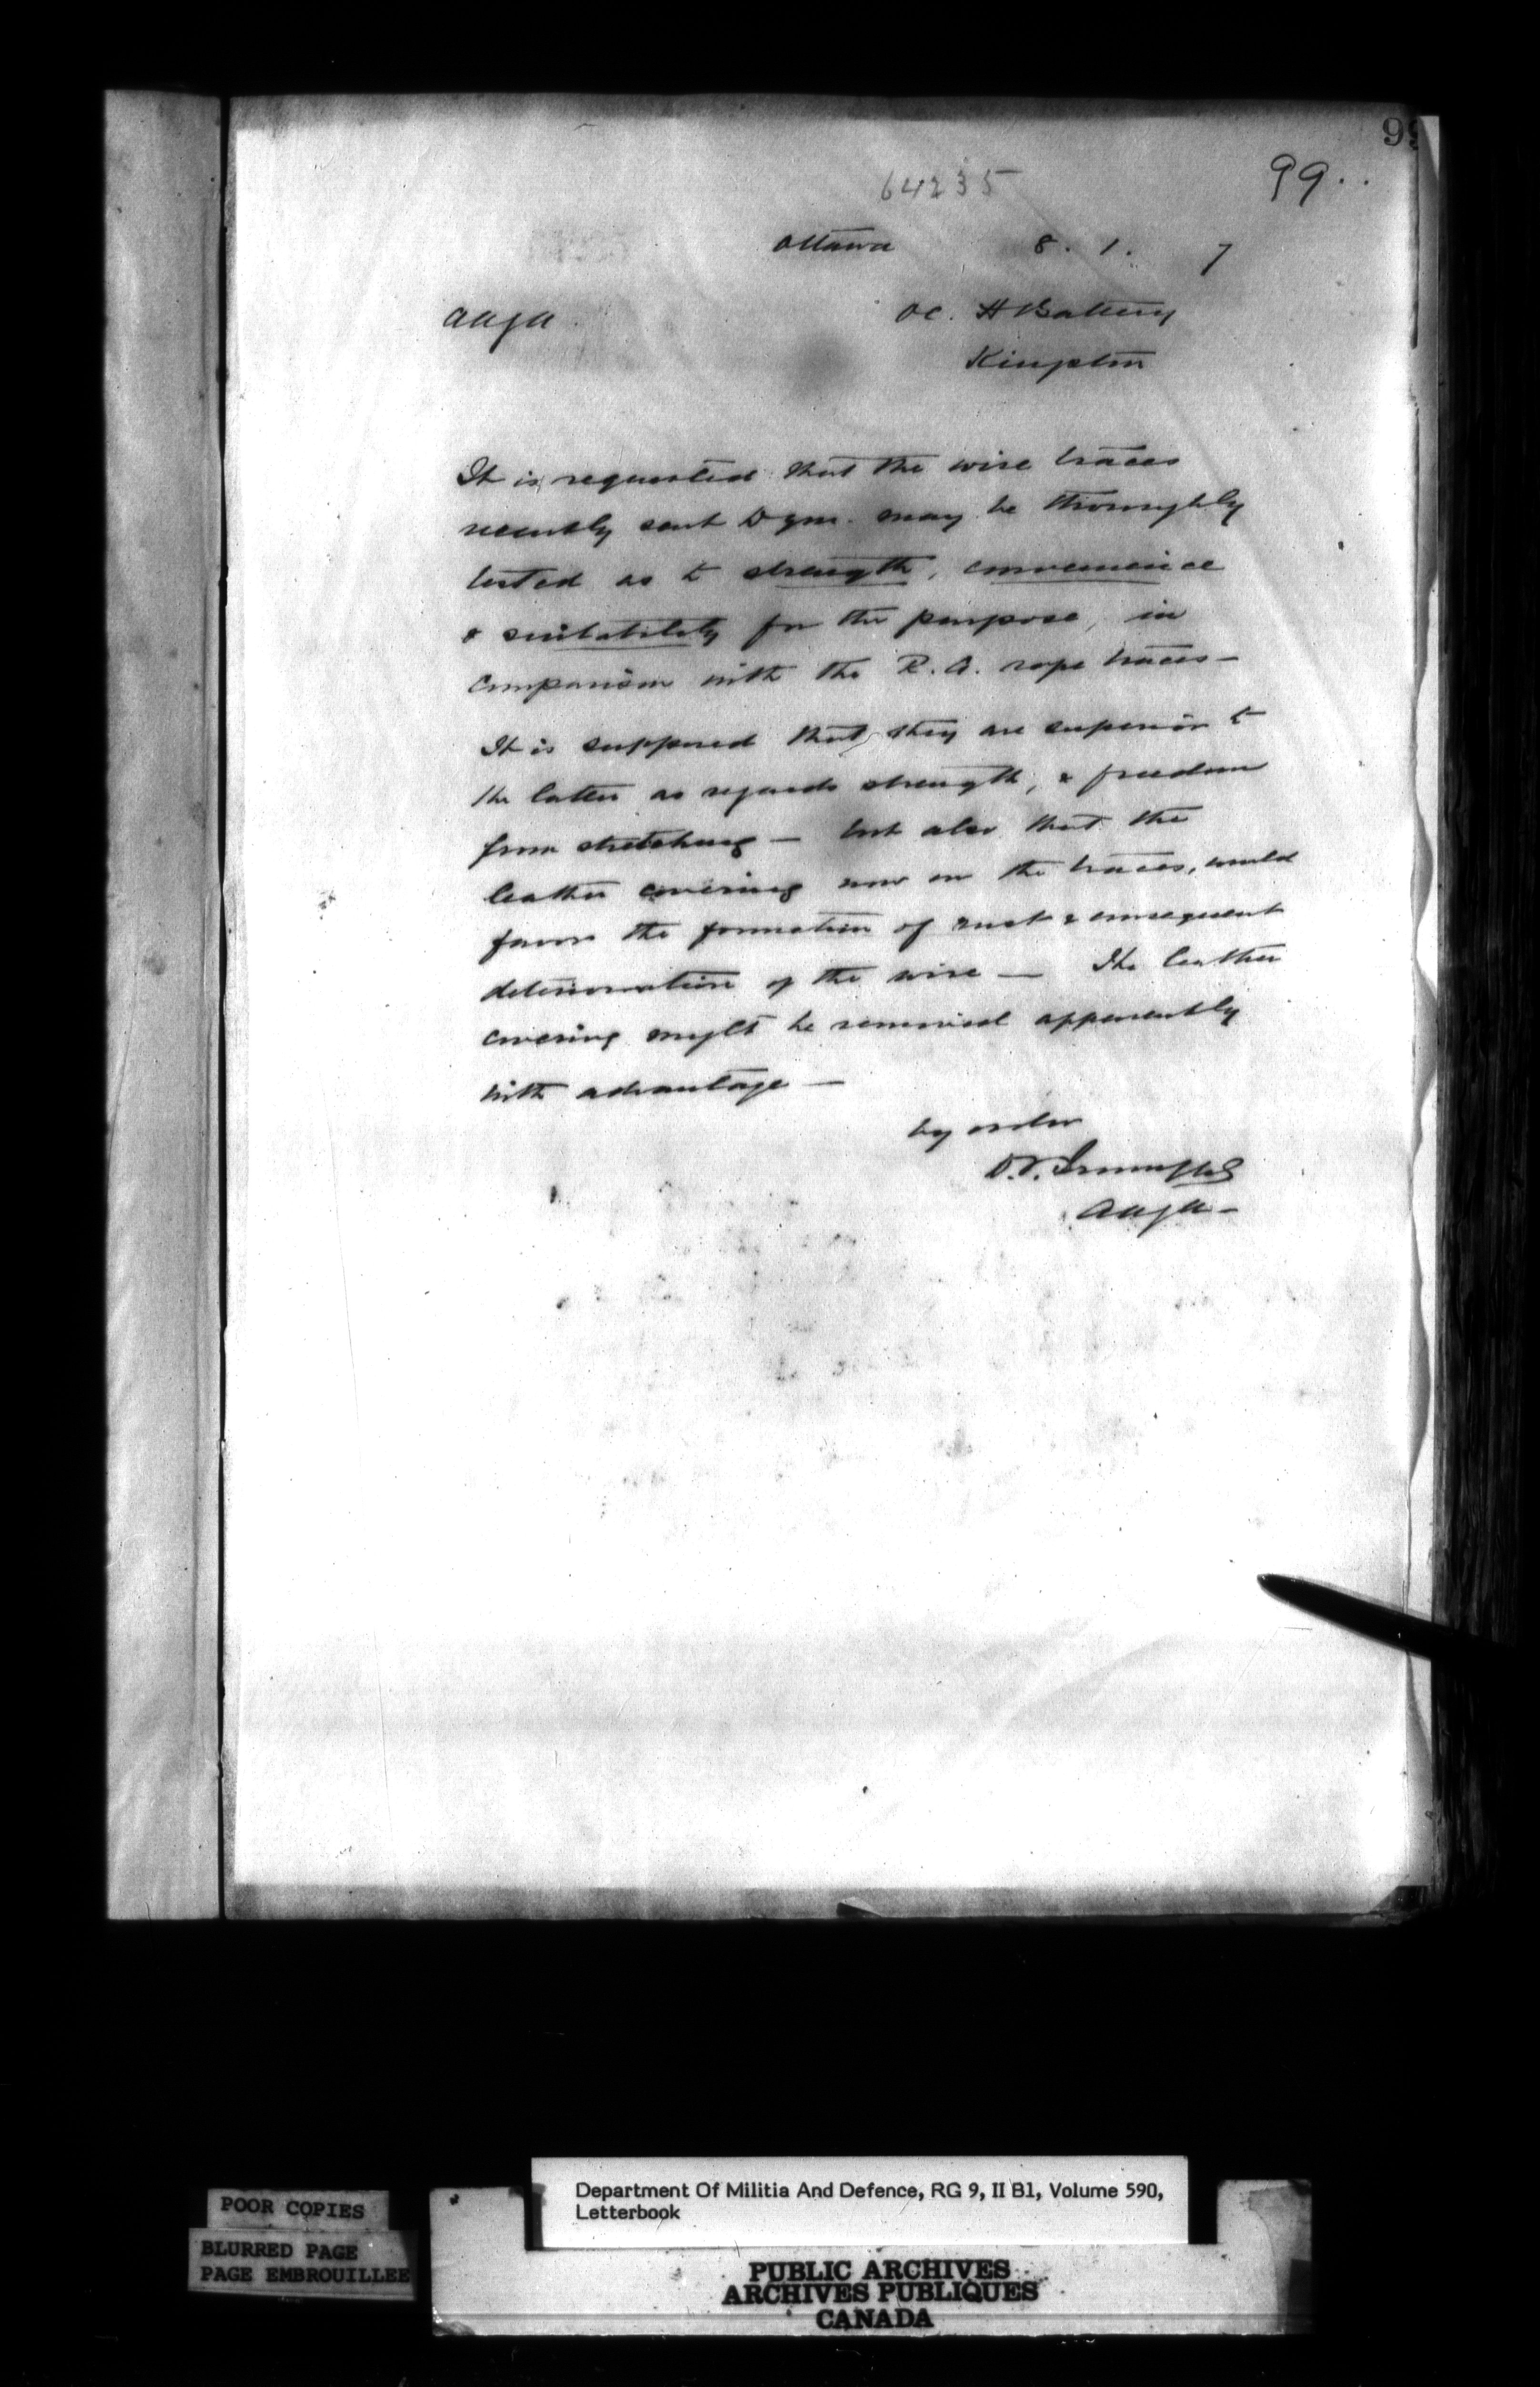 99
99..
64235
Ottawa 8. 1. 7
AAGA.
OC. A Battery
Kingston
It is requested that the wire traces
recently sent to you may be thoroughly
tested as to strength, convenience
& suitability for the purpose, in
comparison with the R.A. rope traces—
It is supposed that they are superior to
the latter as regards strength, & freedom
from stretching — but also that the
leather covering now on the traces, would
favor the formation of rust & consequent
deterioration of the wire — The leather
covering might be removed apparently
with advantage —
by order
AAGA—
Department Of Militia And Defence, RG 9, II B1, Volume 590,
Letterbook
POOR COPIES
BLURRED PAGE
PAGE EMBROUILLEE
PUBLIC ARCHIVES
ARCHIVES PUBLIQUES
CANADA